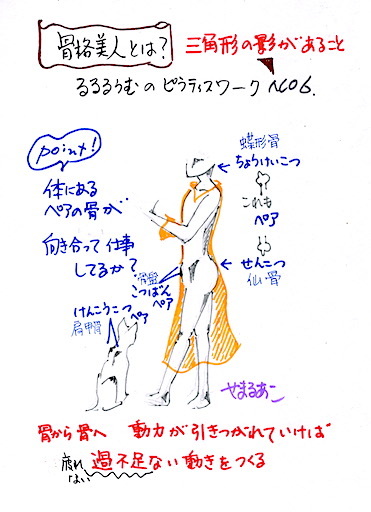 骨格美人とは?
三角形の影があること
るるるうむのピラティスワーク NO6.
point!
体にある
ペアの骨が
向き合って仕事
してるか?
蝶形骨
ちょうけいこつ
これも
ペア
せんこつ
仙骨
骨盤
こつばん
ペア
けんこうこつ
ペア
肩甲骨
やまるあこ
骨から骨へ 動力が引きつがれていけば
疲れ
ない
過不足ない動きをつくる